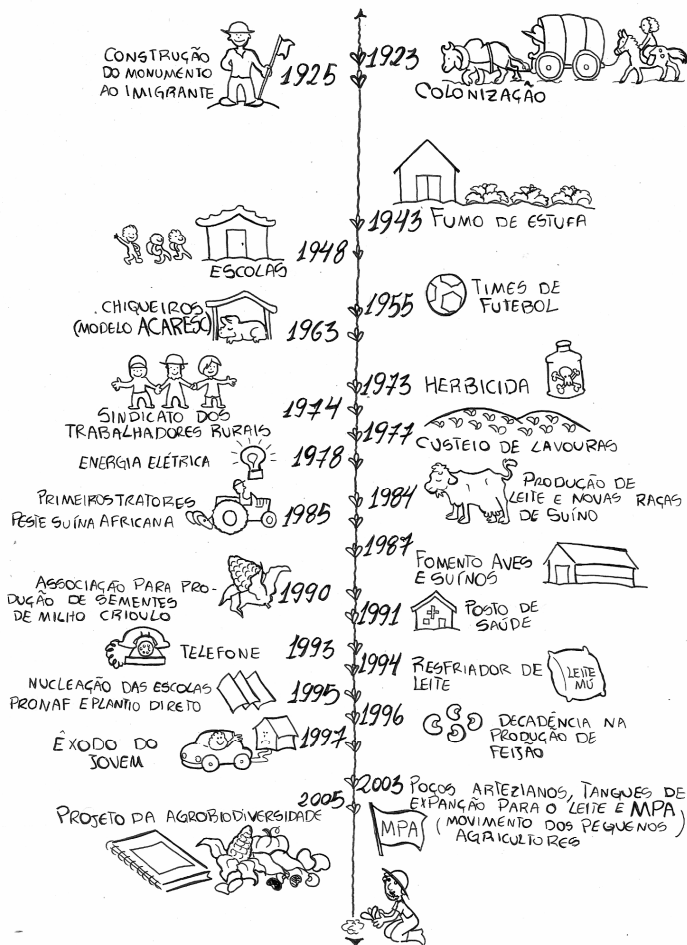 1923
COLONIZAÇÃO
CONSTRUÇÃO
DO MONUMENTO
AO IMIGRANTE
1925
1943 FUMO DE ESTUFA
1948
ESCOLAS
1955
TIMES DE
FUTEBOL
CHIQUEIROS
(MODELO ACARESC)
1963
1973 HERBICIDA
1974
SINDICATO DOS
TRABALHADORES RURAIS
1977
CUSTEIO DE LAVOURAS
ENERGIA ELÉTRICA
1978
1984
PRODUÇÃO DE
LEITE E NOVAS RAÇAS
DE SUÍNO
PRIMEIROS TRATORES
PESTE SUÍNA AFRICANA
1985
1987
FOMENTO AVES
E SUÍNOS
ASSOCIAÇÃO PARA PRO-
DUÇÃO DE SEMENTES
DE MILHO CRIOULO
1990
1991
POSTO DE
SAÚDE
TELEFONE
1993
1994
RESFRIADOR DE
LEITE
LEITE
MÚ
NUCLEAÇÃO DAS ESCOLAS
PRONAF E PLANTIO DIRETO
1995
1996
DECADÊNCIA NA
PRODUÇÃO DE
FEIJÃO
ÊXODO DO
JOVEM
1997
2003 POÇOS ARTEZIANOS, TANQUES DE
EXPANÇÃO PARA O LEITE E MPA
(MOVIMENTO DOS PEQUENOS)
AGRICULTORES
MPA
2005
PROJETO DA AGROBIODIVERSIDADE